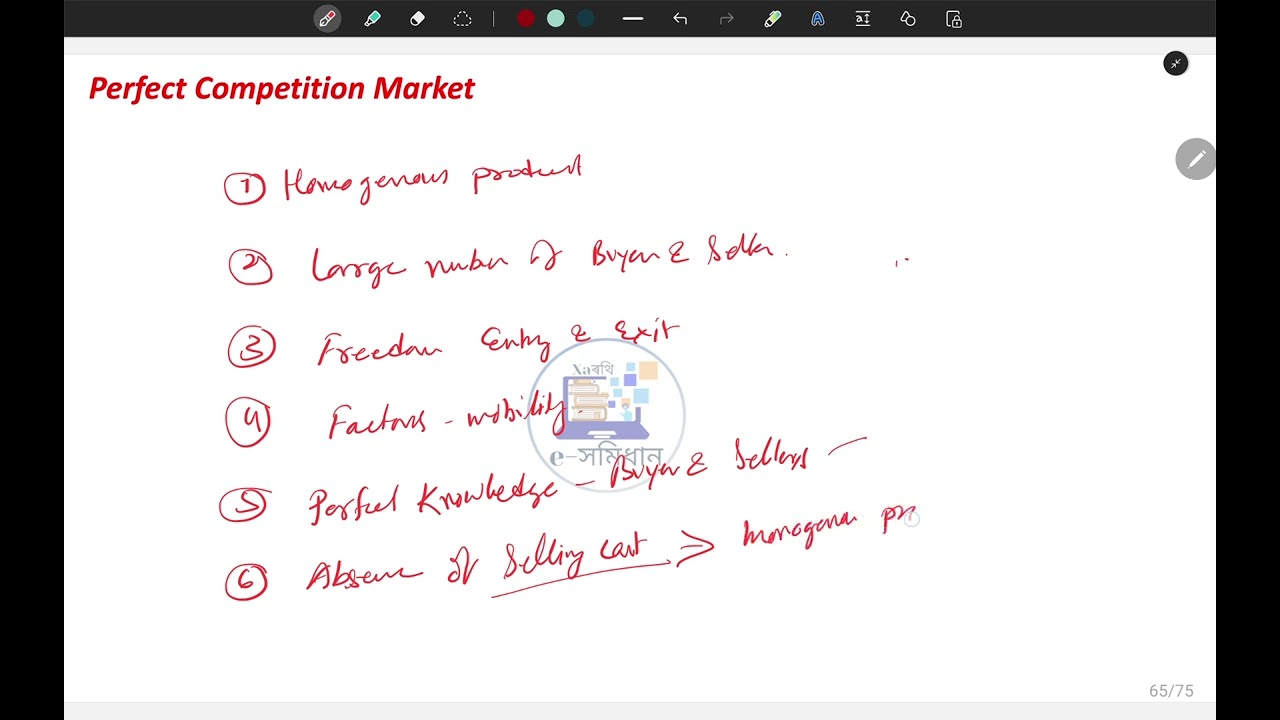 Perfect Competition Market
① Homogenous product
② Large number of Buyer & Seller.
③ Freedom Entry & Exit
Xaৰথি
④ Factors - mobility.
e-সমিধান
⑤ Perfect Knowledge - Buyer & Sellers -
⑥ Absence of Selling cost ⇒ Homogenous pr
65/75